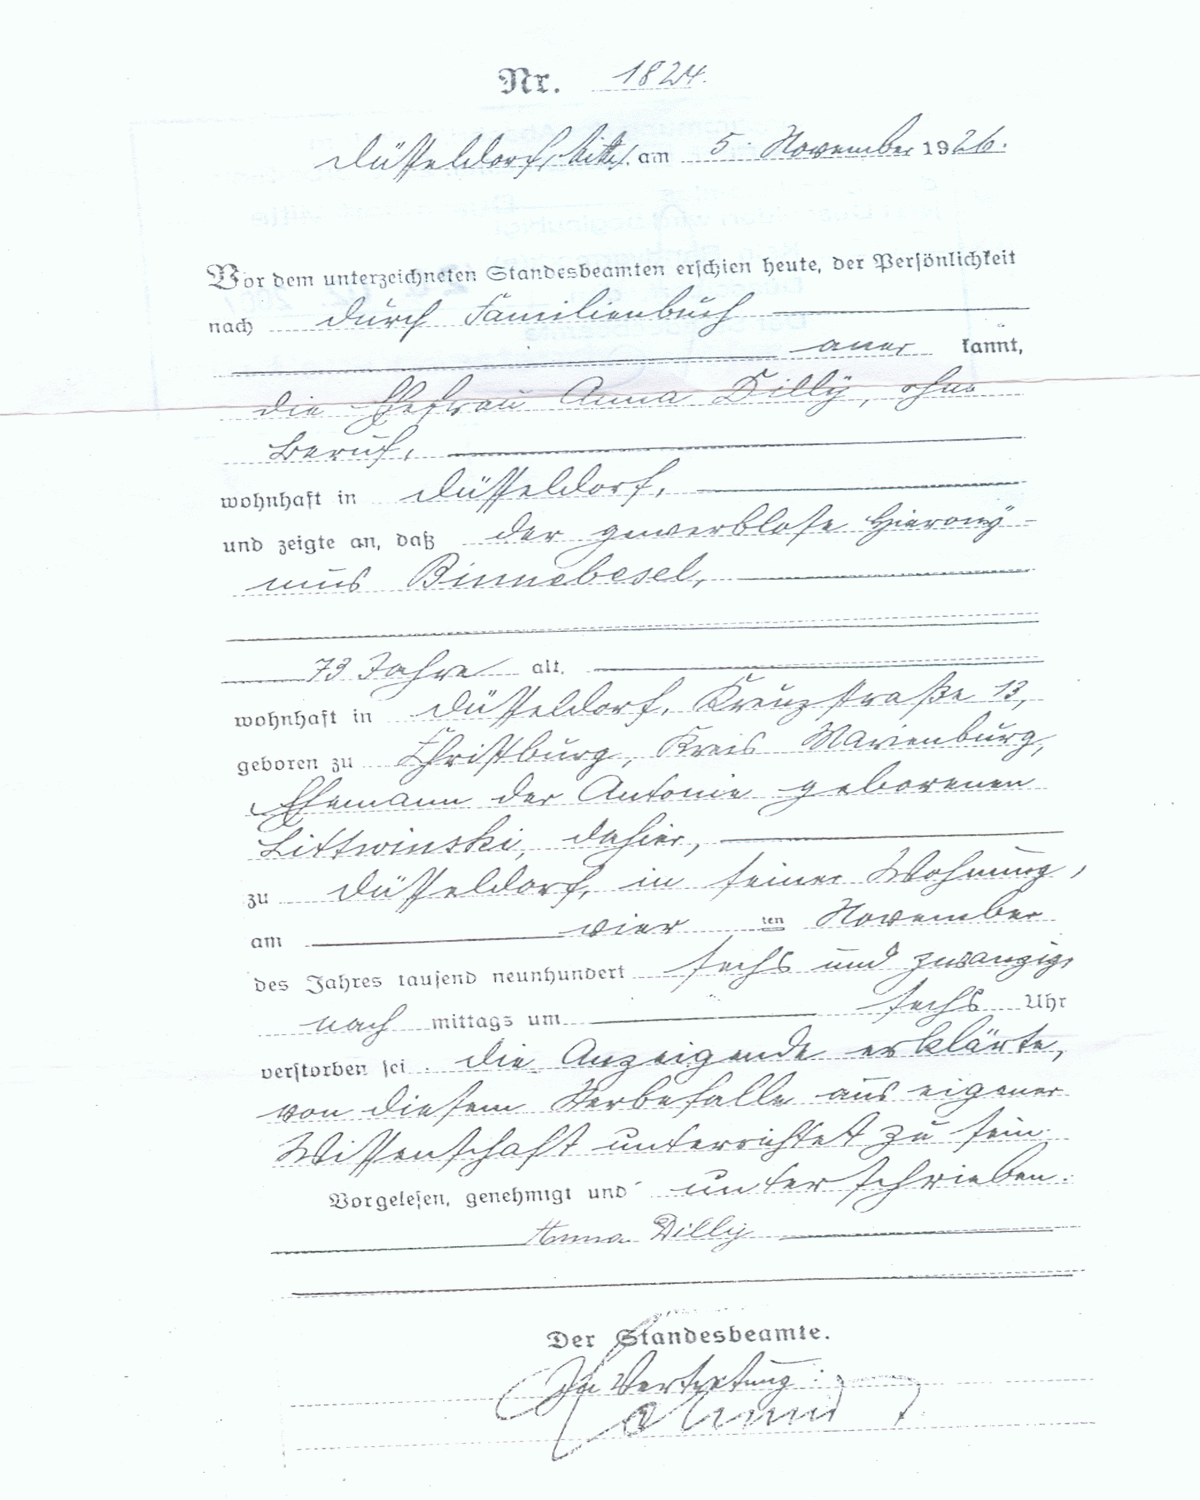 Nr. 1824.
Düsseldorf, Mitte, am 5. November 1926.
Vor dem unterzeichneten Standesbeamten erschien heute, der Persönlichkeit
nach durch Familienbuch
aner kannt,
die Ehefrau Anna Dilly, ohne
Beruf,
wohnhaft in Düsseldorf,
und zeigte an, daß der gewerblose Hierony-
mus Binnebesel,
73 Jahre alt,
wohnhaft in Düsseldorf, Kreuzstraße 13,
geboren zu Christburg, Kreis Marienburg,
Ehemann der Antonie geborenen
Littwinski, dahier,
zu Düsseldorf, in seiner Wohnung,
am vier ten November
des Jahres tausend neunhundert sechs und zwanzig,
nach mittags um sechs Uhr
verstorben sei. Die Anzeigende erklärte,
von diesem Sterbefalle aus eigener
Wissenschaft unterrichtet zu sein.
Vorgelesen, genehmigt und unterschrieben.
Anna Dilly
Der Standesbeamte.
In Vertretung: